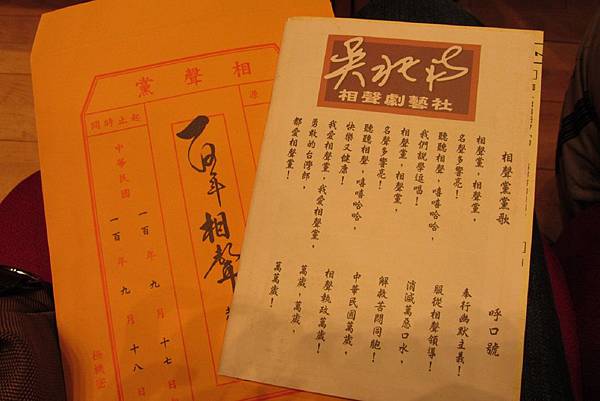 吳兆南
相聲劇藝社
相聲黨黨歌
相聲黨，相聲黨，
名聲多響亮！
聽聽相聲，嘻嘻哈哈，
我們說學逗唱！
相聲黨，相聲黨，
名聲多響亮！
聽聽相聲，嘻嘻哈哈，
快樂又健康！
我愛相聲黨，我愛相聲黨，
勇敢的台灣郎，
都愛相聲黨！
呼口號
奉行幽默主義！
服從相聲領導！
消滅萬惡口水，
解救苦悶同胞！
中華民國萬歲，
相聲執政萬歲！
萬歲，萬歲，
萬萬歲！
相聲黨
百年相聲
起止時間
中華民國
一百年九月十七日
一百年九月十八日
極機密